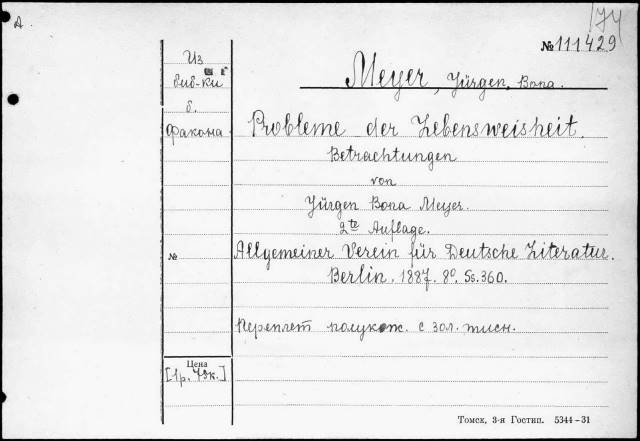 A
174
№ 111429
Из
биб-ки
б.
Факона
Meyer, Jürgen, Bona.
Probleme der Lebensweisheit.
Betrachtungen
von
Jürgen Bona Meyer.
2te Auflage.
№
Allgemeiner Verein für Deutsche Literatur.
Berlin. 1887. 8º. Ss. 360.
Переплет полукож. с зол. тисн.
Цена
[1р. 73к.]
Томск, 3-я Гостип. 5344-31